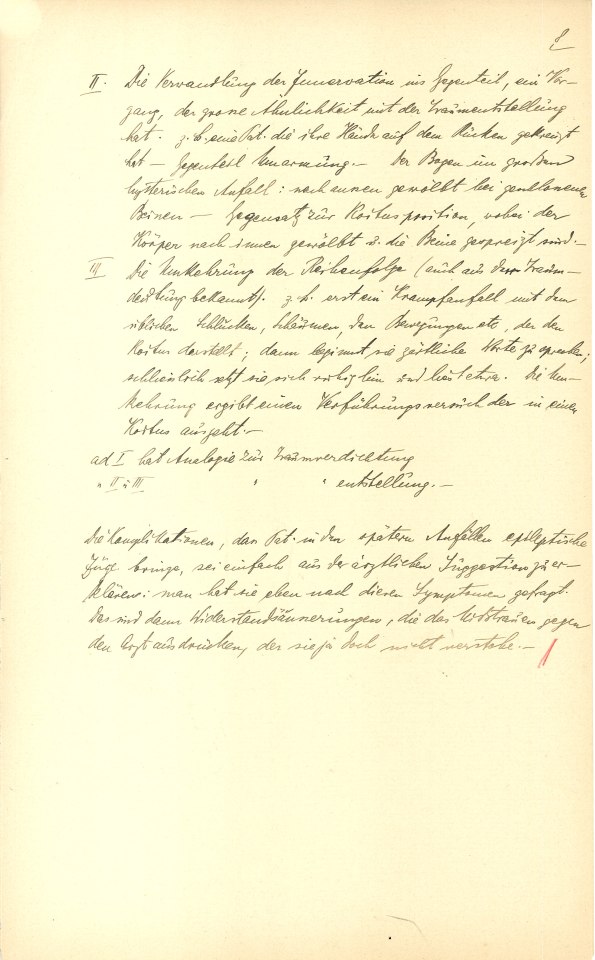 8
II. Die Verwandlung der Innervation ins Gegenteil, ein Vor-
gang, der grosse Ähnlichkeit mit der Traumentstellung
hat. z.b. eine Pat. die ihre Hände auf dem Rücken gekreuzt
hat — Gegenteil Umarmung. — Der Bogen im grossen
hysterischen Anfall: nach aussen gewölbt bei geschlossenen
Beinen — Gegensatz zur Koitusposition, wobei der
Körper nach innen gewölbt u. die Beine gespreizt sind. —
III Die Umkehrung der Reihenfolge (auch aus der Traum-
deutung bekannt). z.b. erst ein Krampfanfall mit dem
üblichen Schlucken, Schäumen, den Bewegungen etc, der den
Koitus darstellt; dann beginnt sie zärtliche Worte zu sprechen;
schliesslich setzt sie sich ruhig hin und liest etwa. Die Um-
kehrung ergibt einen Verführungsversuch der in einen
Koitus ausgeht. —
ad I hat Analogie zur Traumverdichtung
" II u III " " entstellung. —
Die Komplikationen, dass Pat. in den spätern Anfällen epileptische
Züge bringe, sei einfach aus der ärztlichen Suggestion zu er-
klären: man hat sie eben nach diesen Symptomen gefragt.
Das sind dann Widerstandsäusserungen, die das Misstrauen gegen
den Arzt ausdrücken, der sie ja doch nicht verstehe. —